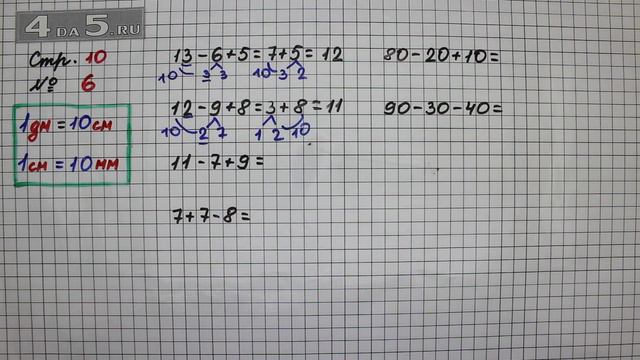 4 DA 5.RU
Стр. 10
№ 6
1 дм = 10 см
1 см = 10 мм
13 - 6 + 5 = 7 + 5 = 12
10 3 3 10 3 2
12 - 9 + 8 = 3 + 8 = 11
10 2 7 1 2 10
11 - 7 + 9 =
7 + 7 - 8 =
80 - 20 + 10 =
90 - 30 - 40 =